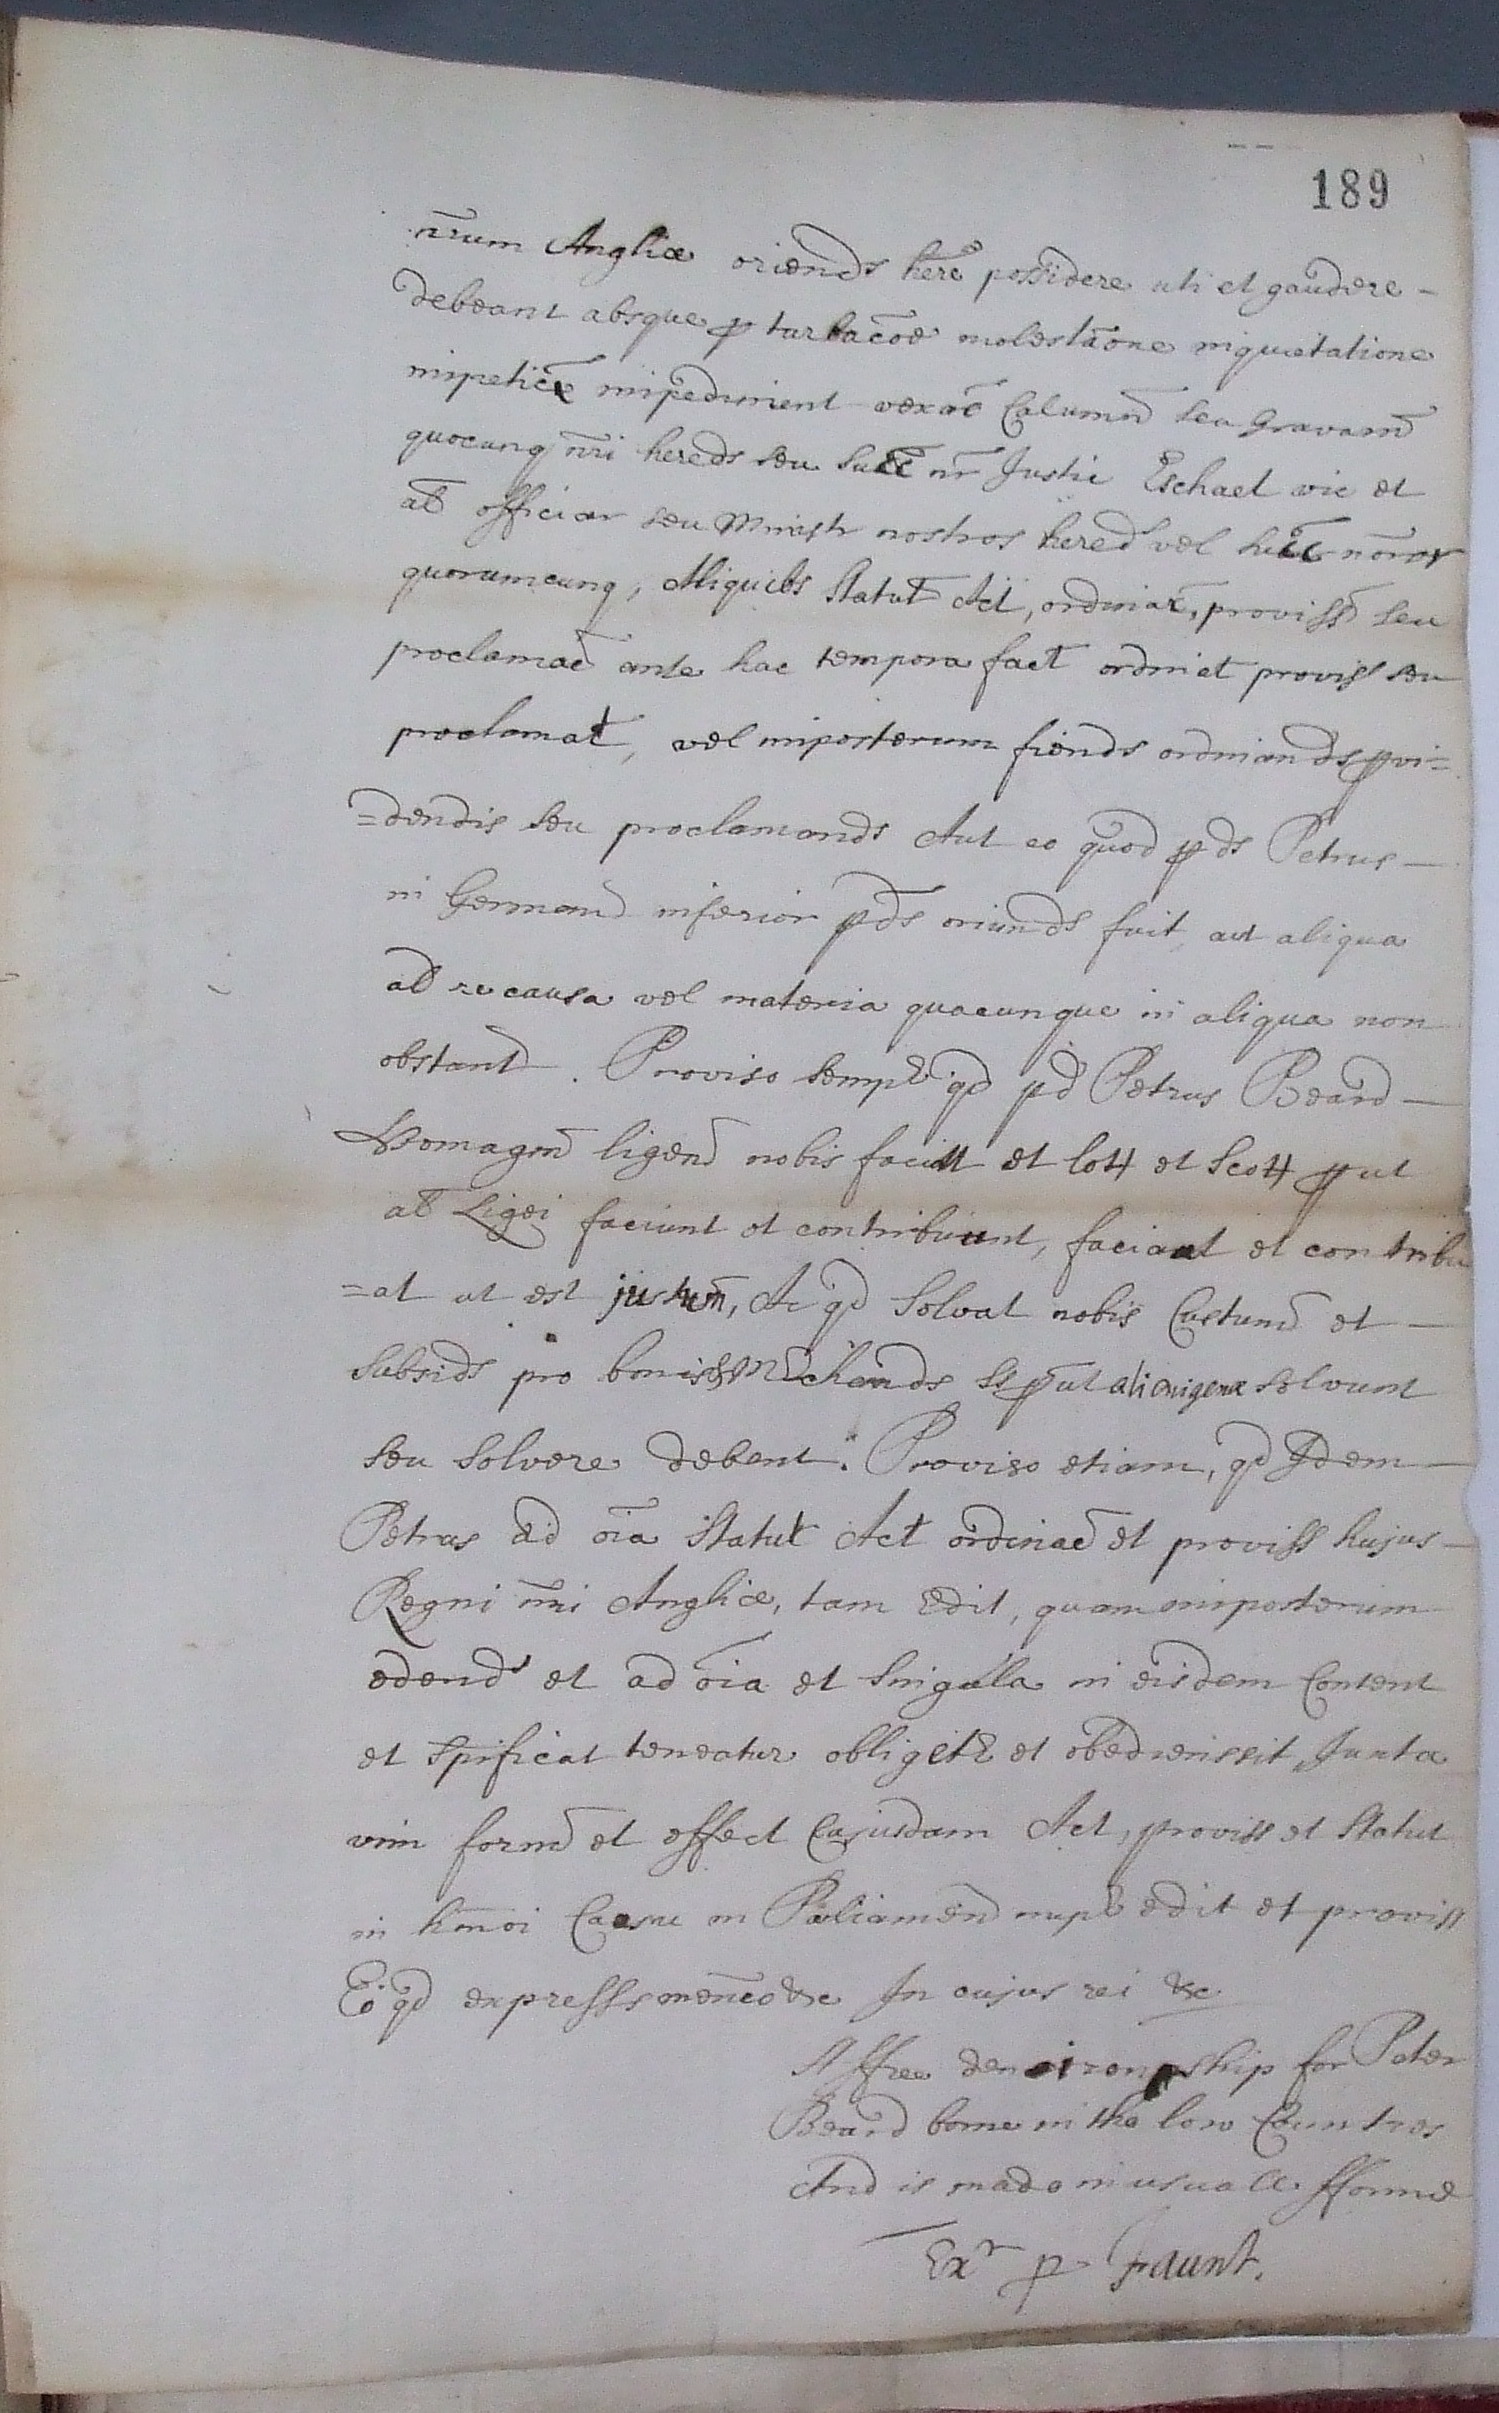 189
n̄rum Angliæ oriends hēre possidere uti et gaudere -
debeant absque p turbac̄oe molestac̄one inquietatione
impetic̄ impediment vexac̄ Calumn̄ seu Gravam̄
quocunq n̄ri hereds seu Succ̄ nr̄ Justic Eschaet vic et
al̄ officiar seu Ministr nostros hered vel succ̄ nror
quorumcunq, Aliquibs Statut Act, ordinac̄, proviss̄ seu
proclamac̄ ante hac tempora fact ordinat proviss seu
proclamat, vel imposterum fiends ordinands pvi=
=dendis seu proclamands Aut eo quod pds Petrus -
in German̄ inferior pds oriunds fuit, aut aliqua
al̄ re causa vel materia quacunque in aliqua non
obstant. Proviso semp qd pd Petrus Beard -
Homagm̄ ligeum̄ nobis faciat et lott et Scott put
al̄ Ligei faciunt et contribuunt, faciat et contribu
=at ut est justum̄, Ac qd Solvat nobis Custum̄ et -
Subsids pro bonis & Mrchands ss put alienigenæ solvunt
seu solvere debent. Proviso etiam, qd Idem -
Petrus ad oīa Statut Act ordinac̄ et proviss hujus -
Regni n̄ri Angliæ, tam Edit, quam imposterum
edends et ad oīa et Singula in eisdem Content
et Spificat teneatur obligetr et obedienssit Juxta
vim form̄ et effect Cujusdam Act, proviss et Statut
in hm̄oi Casu in Parliamen̄ nup edit et proviss
Eo qd expresss menc̄o &c In cujus rei &c
A ffree denizonship for Peter
Beard borne in the low Countres
And is made in usuall fforme
Exr p Gaunt.